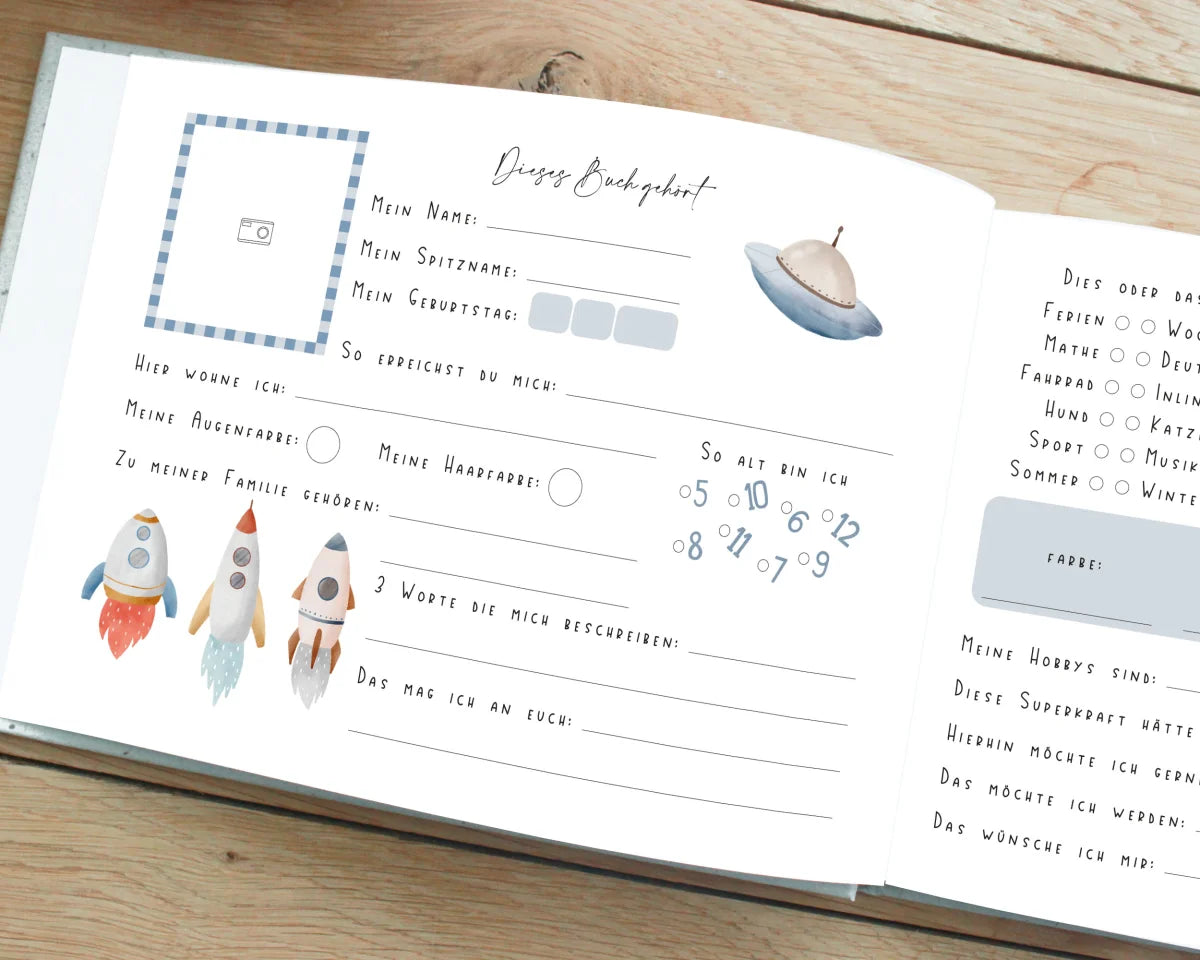 Dieses Buch gehört
Mein Name:
Mein Spitzname:
Mein Geburtstag:
So erreichst du mich:
Hier wohne ich:
Meine Augenfarbe:
Meine Haarfarbe:
Zu meiner Familie gehören:
So alt bin ich
5 10 6 12
8 11 7 9
3 Worte die mich beschreiben:
Das mag ich an euch:
Dies oder
Ferien
Mathe
Fahrrad
Hund
Sport Musik
Sommer
Farbe:
Meine Hobbys sind:
Diese Superkraft hätte
Hierhin möchte ich
Das möchte ich werden:
Das wünsche ich mir: